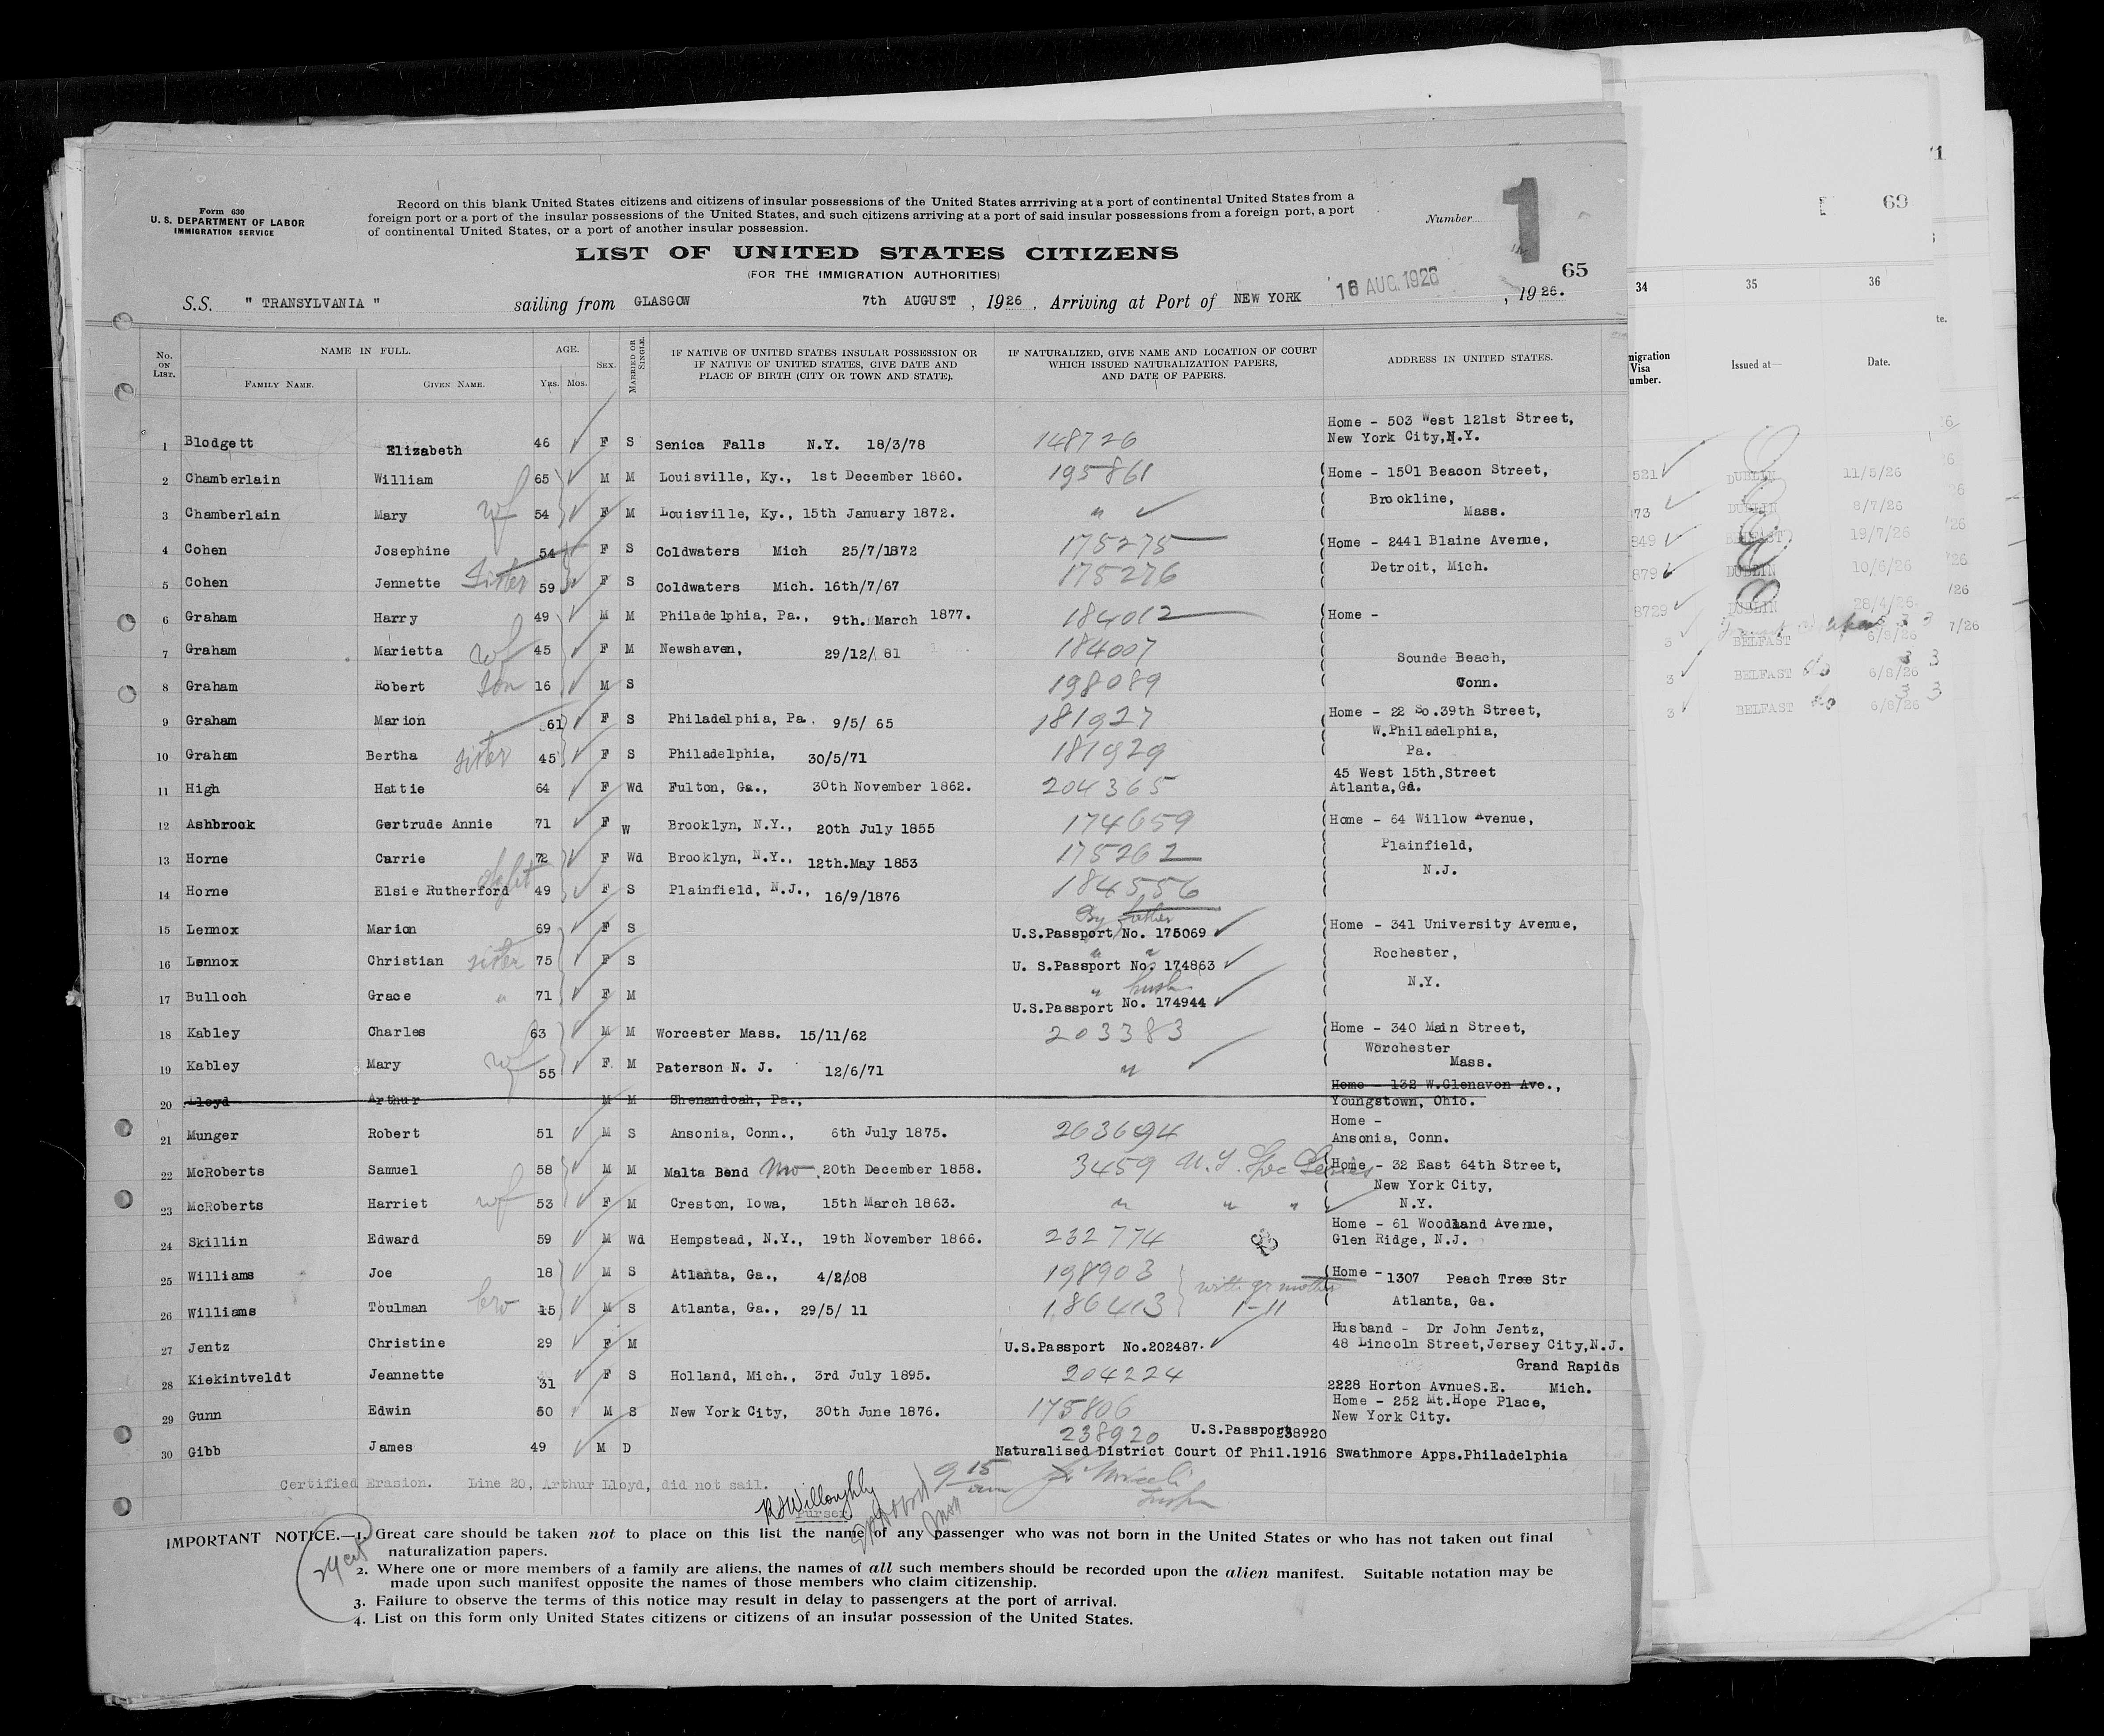 Form 630
U. S. DEPARTMENT OF LABOR
IMMIGRATION SERVICE
Record on this blank United States citizens and citizens of insular possessions of the United States arrriving at a port of continental United States from a
foreign port or a port of the insular possessions of the United States, and such citizens arriving at a port of said insular possessions from a foreign port, a port
of continental United States, or a port of another insular possession.
Number 1
LIST OF UNITED STATES CITIZENS
(FOR THE IMMIGRATION AUTHORITIES)
65
S.S. " TRANSYLVANIA " sailing from GLASGOW 7th AUGUST , 1926 , Arriving at Port of NEW YORK 16 AUG. 1926 , 1926.
No. ON LIST. NAME IN FULL. FAMILY NAME. GIVEN NAME. AGE. Yrs. Mos. SEX. MARRIED OR SINGLE.
IF NATIVE OF UNITED STATES INSULAR POSSESSION OR
IF NATIVE OF UNITED STATES, GIVE DATE AND
PLACE OF BIRTH (CITY OR TOWN AND STATE).
IF NATURALIZED, GIVE NAME AND LOCATION OF COURT
WHICH ISSUED NATURALIZATION PAPERS,
AND DATE OF PAPERS.
ADDRESS IN UNITED STATES.
Home - 503 West 121st Street,
1 Blodgett Elizabeth 46 F S Senica Falls N.Y. 18/3/78 148726 New York City,N.Y.
2 Chamberlain William 65 M M Louisville, Ky., 1st December 1860. 195861 Home - 1501 Beacon Street,
Brookline,
3 Chamberlain Mary wf 54 F M Louisville, Ky., 15th January 1872. " Mass.
4 Cohen Josephine 54 F S Coldwaters Mich 25/7/1872 175275 Home - 2441 Blaine Avenue,
Detroit, Mich.
5 Cohen Jennette Sister 59 F S Coldwaters Mich. 16th/7/67 175276
6 Graham Harry 49 M M Philadelphia, Pa., 9th. March 1877. 184012 Home -
7 Graham Marietta wf 45 F M Newshaven, 29/12/ 81 184007 Sounde Beach,
8 Graham Robert Son 16 M S 198089 Conn.
9 Graham Marion 61 F S Philadelphia, Pa. 9/5/ 65 181927 Home - 22 So.39th Street,
W.Philadelphia,
10 Graham Bertha sister 45 F S Philadelphia, 30/5/71 181929 Pa.
45 West 15th,Street
11 High Hattie 64 F Wd Fulton, Ga., 30th November 1862. 204365 Atlanta,Ga.
12 Ashbrook Gertrude Annie 71 F W Brooklyn, N.Y., 20th July 1855 174659 Home - 64 Willow Avenue,
Plainfield,
13 Horne Carrie 72 F Wd Brooklyn, N.Y., 12th.May 1853 175262 N.J.
14 Horne Elsie Rutherford 49 F S Plainfield, N.J., 16/9/1876 184556
By father
15 Lennox Marion 69 F S U.S.Passport No. 175069 Home - 341 University Avenue,
" "
16 Lennox Christian sister 75 F S U. S.Passport No. 174863 Rochester,
" husb
17 Bulloch Grace " 71 F M U.S.Passport No. 174944 N.Y.
18 Kabley Charles 63 M M Worcester Mass. 15/11/62 203383 Home - 340 Main Street,
Worchester
19 Kabley Mary wf 55 F M Paterson N. J. 12/6/71 " Mass.
Home - 132 W.Glenavon Ave.,
20 Lloyd Arthur M M Shenandoah, Pa., Youngstown, Ohio.
Home -
21 Munger Robert 51 M S Ansonia, Conn., 6th July 1875. 263694 Ansonia, Conn.
22 McRoberts Samuel 58 M M Malta Bend Mo 20th December 1858. 3459 Home - 32 East 64th Street,
New York City,
23 McRoberts Harriet wf 53 F M Creston, Iowa, 15th March 1863. " " " N.Y.
Home - 61 Woodland Avenue,
24 Skillin Edward 59 M Wd Hempstead, N.Y., 19th November 1866. 232774 Glen Ridge, N.J.
25 Williams Joe 18 M S Atlanta, Ga., 4/2/08 198903 Home - 1307 Peach Tree Str
with gr mother
26 Williams Toulman bro 15 M S Atlanta, Ga., 29/5/ 11 186413 1-11 Atlanta, Ga.
Husband - Dr John Jentz,
27 Jentz Christine 29 F M U.S.Passport No.202487. 48 Lincoln Street,Jersey City,N.J.
Grand Rapids
28 Kiekintveldt Jeannette 31 F S Holland, Mich., 3rd July 1895. 204224 2228 Horton AvnueS.E. Mich.
Home - 252 Mt.Hope Place,
29 Gunn Edwin 50 M S New York City, 30th June 1876. 175806 New York City.
238920 U.S.Passport 238920
30 Gibb James 49 M D Naturalised District Court Of Phil.1916 Swathmore Apps.Philadelphia
Certified Erasion. Line 20, Arthur Lloyd, did not sail.
RSWilloughly
Purser
9 15 am
IMPORTANT NOTICE.—1. Great care should be taken not to place on this list the name of any passenger who was not born in the United States or who has not taken out final
naturalization papers.
2. Where one or more members of a family are aliens, the names of all such members should be recorded upon the alien manifest. Suitable notation may be
made upon such manifest opposite the names of those members who claim citizenship.
3. Failure to observe the terms of this notice may result in delay to passengers at the port of arrival.
4. List on this form only United States citizens or citizens of an insular possession of the United States.
69
34 35 36
migration
Visa
umber.
Issued at—
Date.
521 DUBLIN 11/5/26
73 DUBLIN 8/7/26
849 BELFAST 19/7/26
879 DUBLIN 10/6/26
8729 DUBLIN 28/4/26
3 BELFAST 6/8/26
3 BELFAST 6/8/26
3 BELFAST 6/8/26